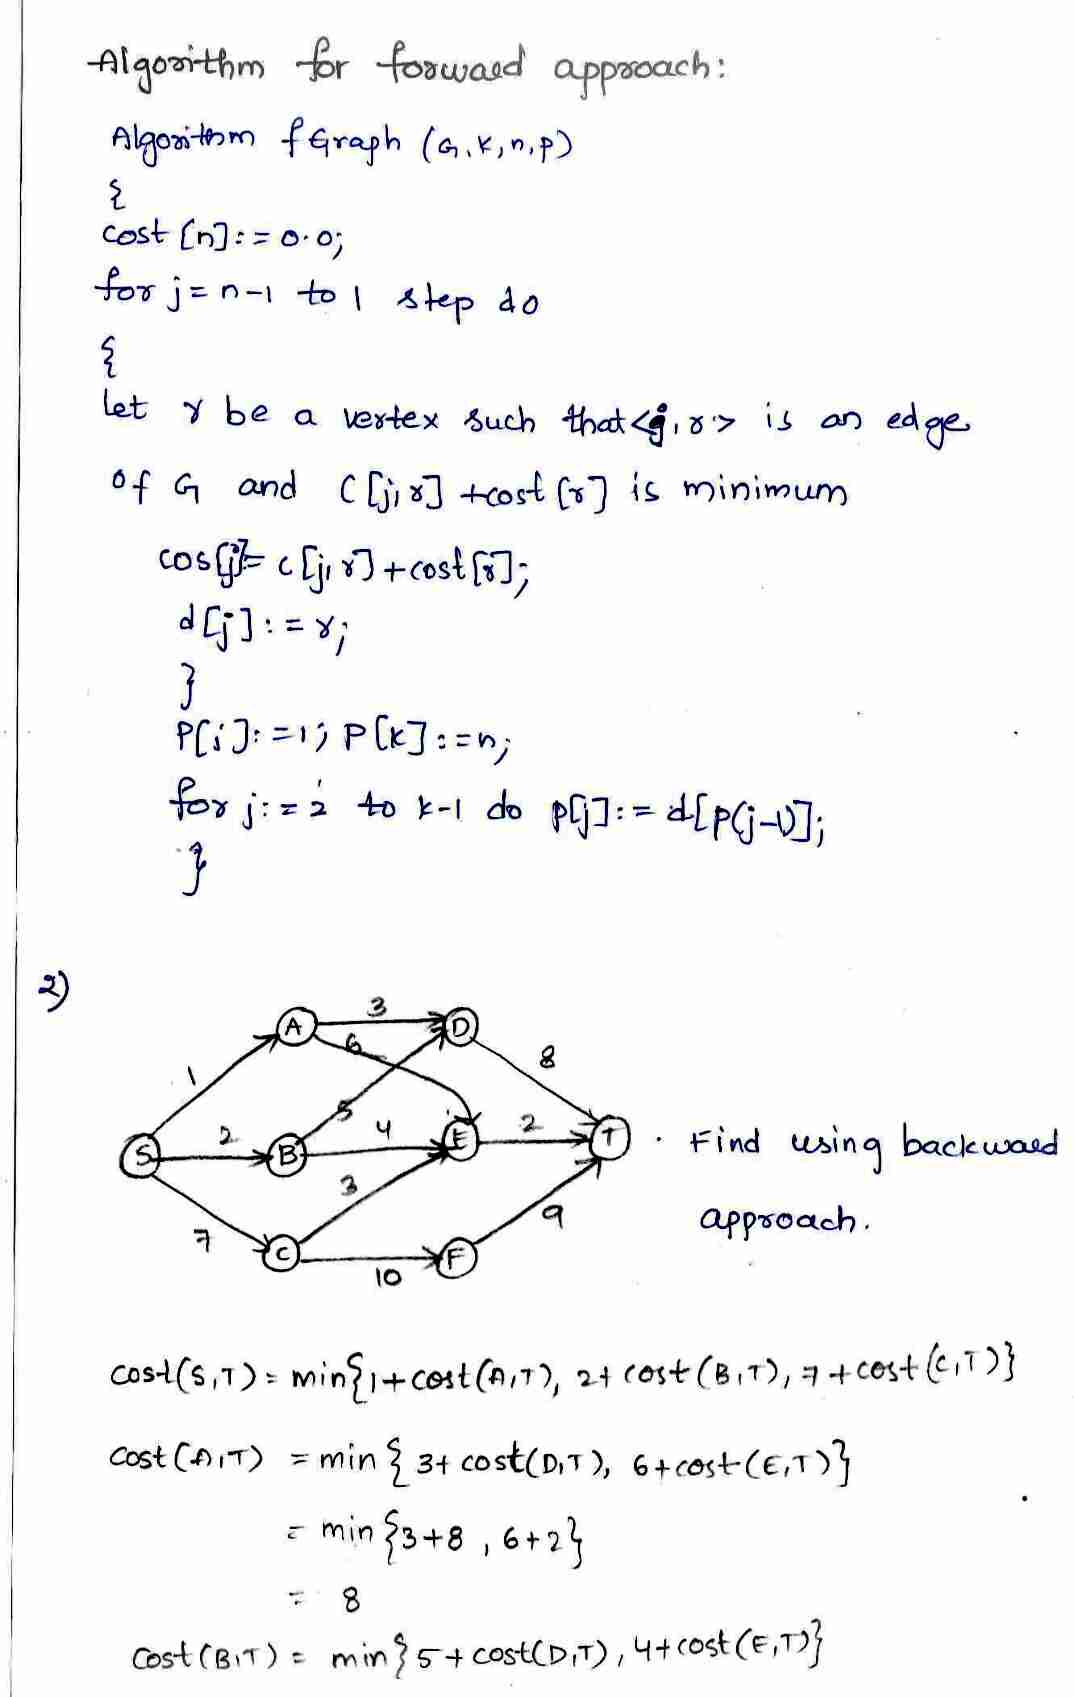 Algorithm for forward approach:
Algorithm fGraph (G,k,n,p)
{
cost [n]:=0.0;
for j=n-1 to 1 step do
{
Let r be a vertex such that <j,r> is an edge
of G and C[j,r] +cost[r] is minimum
cos[j]= c[j,r]+cost[r];
d[j]:=r;
}
P[i]:=1; P[k]:=n;
for j:=2 to k-1 do p[j]:=d[p(j-1)];
}
2)
A 3 D
6
1 8
5
S 2 B 4 E 2 T . Find using backward
3
7 9 approach.
C 10 F
cost(S,T)= min{1+cost(A,T), 2+cost(B,T), 7+cost(C,T)}
cost(A,T) = min{3+cost(D,T), 6+cost(E,T)}
= min{3+8, 6+2}
= 8
cost(B,T)= min{5+cost(D,T), 4+cost(E,T)}